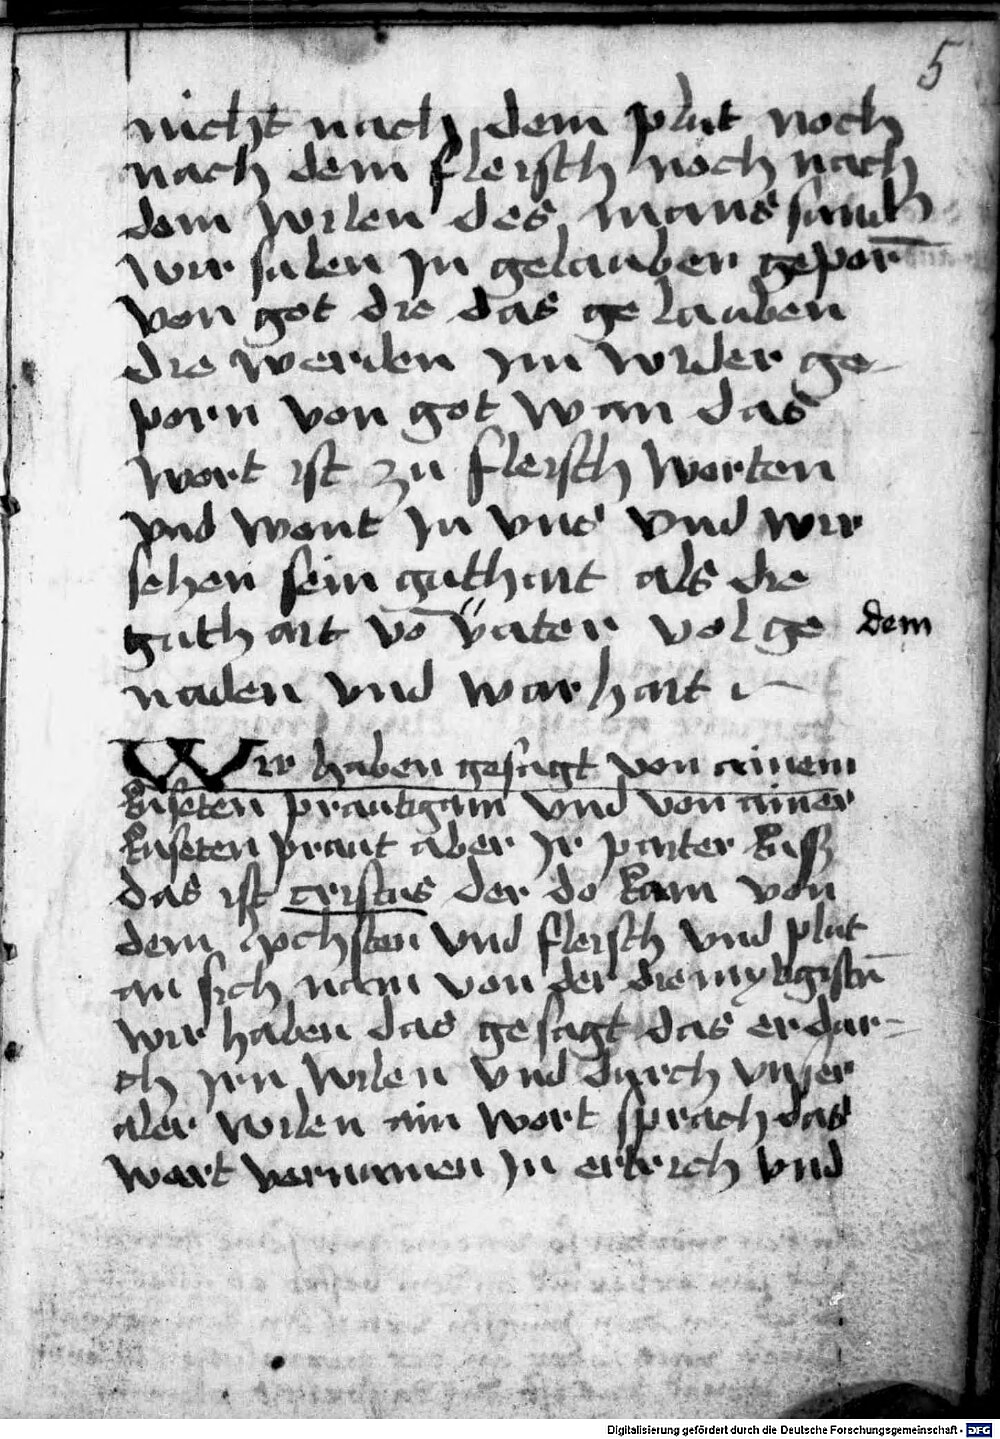 5
nicht nach dem plut noch
nach dem fleisch noch nach
dem wilen des mans sund
wir sulen jn gelauben gepor
von got die das ge lauben
die werden jm wider ge
porn von got wan das
wort ist zu fleisch worten
vnd wont jn vns vnd wir
sehen sein guthait als die
guthait vō vater vol ge dem
naden vnd warhait
Wir haben gesagt von ainem
kuseten prautigam vnd von ainer
kuseten praut aber jr paiter kuss
das ist cristus der do kam von
dem hochsten vnd fleisch vnd plut
an sich nam von der diemutigistn
wir haben das gesagt das er dur-
ch jrn wilen vnd durch vnser
aler wilen ain wort sprach das
wort vernumen jn ertrich vnd
Digitalisierung gefördert durch die Deutsche Forschungsgemeinschaft - DFG